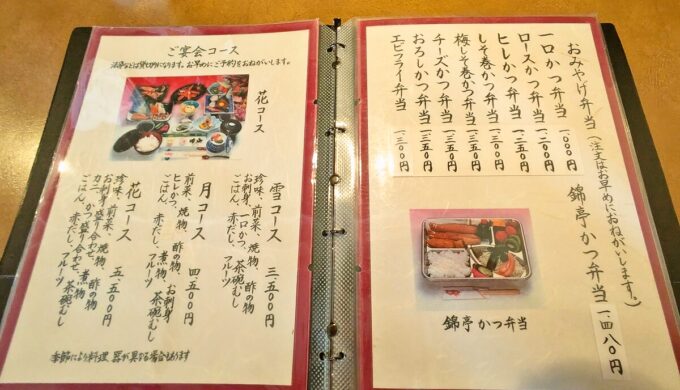 おみやげ弁当(注文はお早めにおねがいします。)
一口かつ弁当 一、〇〇〇円
ロースかつ弁当 一、二〇〇円
ヒレかつ弁当 一、二五〇円
しそ巻かつ弁当 一、三五〇円
梅しそ巻かつ弁当 一、三五〇円
チーズかつ弁当 一、三五〇円
おろしかつ弁当 一、三五〇円
エビフライ弁当 一、三〇〇円
錦亭かつ弁当 一、四八〇円
錦亭かつ弁当
ご宴会コース
お早めにご予約をおねがいします。
花コース
雪コース 三、五〇〇円
珍味、前菜、焼物、酢の物
お刺身、一口かつ、茶碗むし
ごはん、赤だし、フルーツ
月コース 四、五〇〇円
前菜、焼物、酢の物、お刺身
ヒレかつ、煮物、茶碗むし
ごはん、赤だし、フルーツ
花コース 五、五〇〇円
珍味、前菜、焼物、酢の物
お刺身盛り合わせ、煮物
カニ、かつ盛り合わせ、茶碗むし
ごはん、赤だし、フルーツ
季節により料理、器が異なる場合もあります